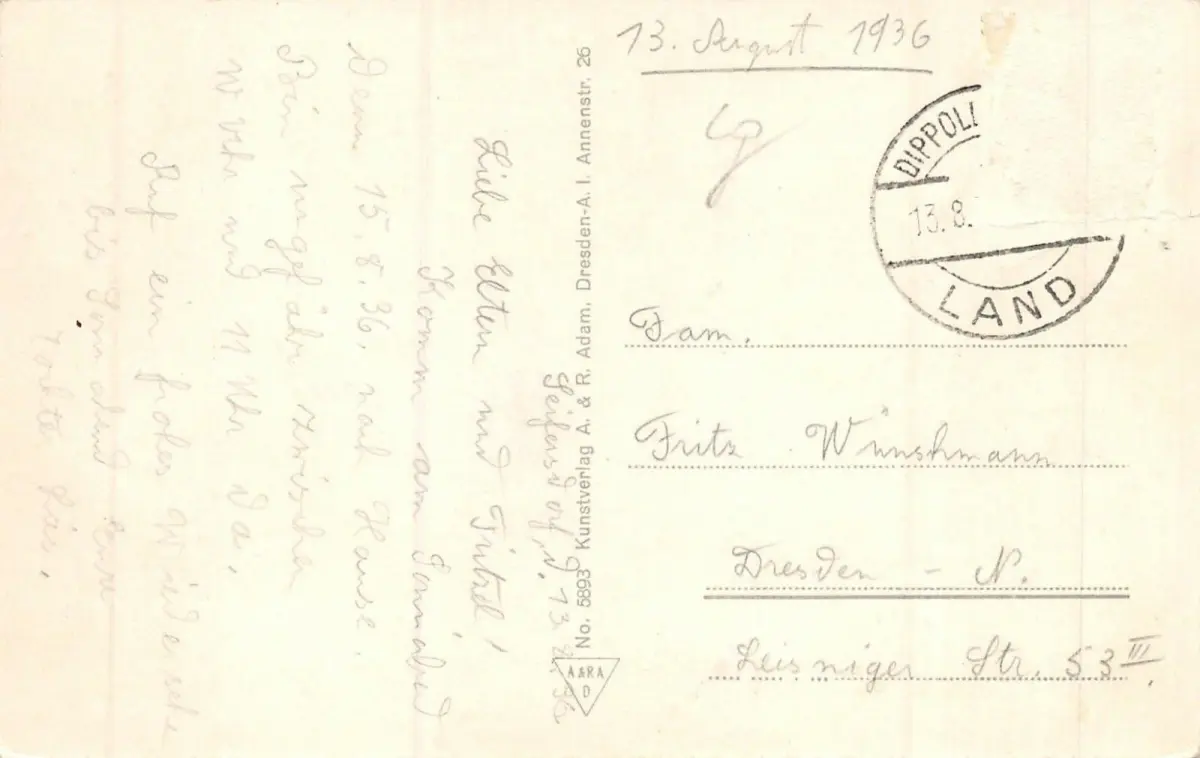 13. August 1936
DIPPOLI
13.8.
LAND
Fam.
Fritz Wünshmann
Dresden - N.
Leisniger Str. 53 III.
No. 5893 Kunstverlag A. & R. Adam, Dresden-A. I. Annenstr. 26
A&RA
D
Seifersdorf, d. 13. 8. 36
Liebe Eltern und Fritzel!
Komm am Sonnabend
15. 8. 36. nach Hause.
Bin ungefähr zwischen
und 11 Uhr da.
Auf ein frohes Wiedersehn
bis Sonnabend Eure